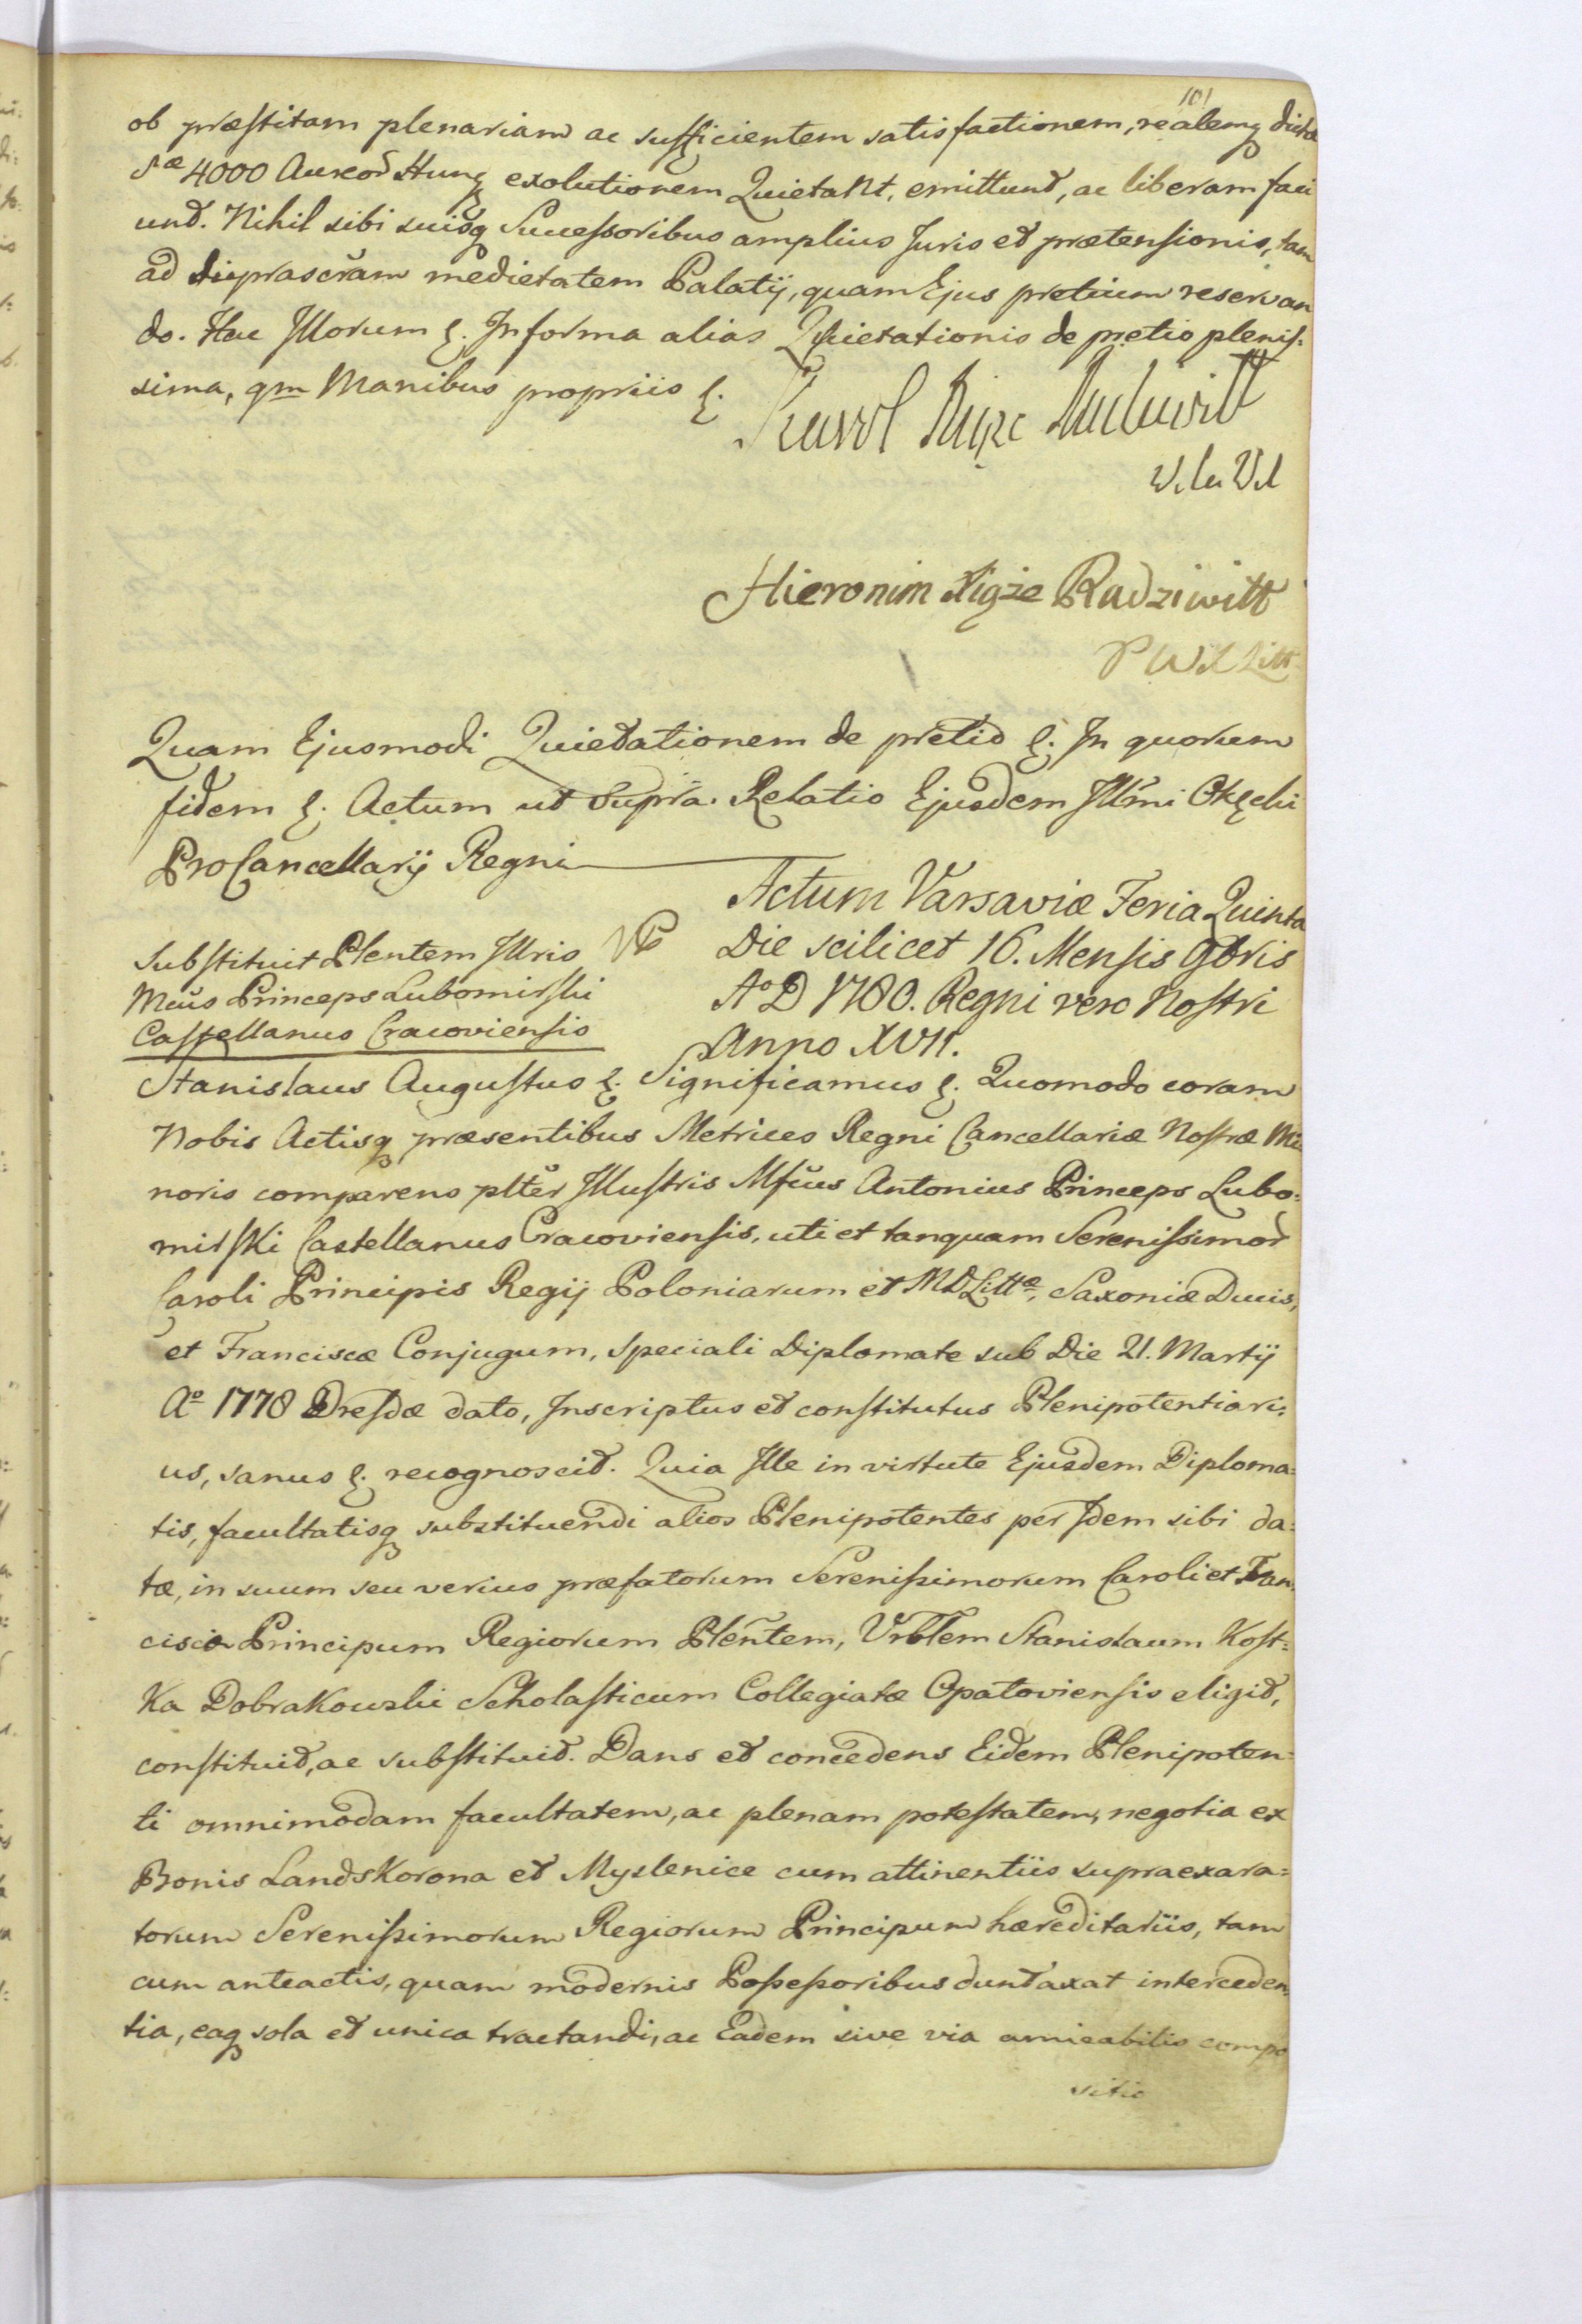 101
ob præstitam plenariam ac sufficientem satisfactionem, realemq dictæ
sæ 4000 Aureor Hung exolutionem Quietant, emittunt, ac liberam faci
unt. Nihil sibi suisq Successoribus amplius Juris et prætensionis, tam
ad suprascram medietatem Palatij, quam Ejus pretium reservan
do. Hac Illorum &. In forma alias Quietationis de pretio plenis:
sima, qm Manibus propriis &.
Karol Xiąże Radziwiłł
Hieronim Xiąże Radziwiłł
P W X Litt
Quam Ejusmodi Quietationem de pretio &. In quorum
fidem &. Actum ut Supra. Relatio Ejusdem Illmi Okęcki
ProCancellarij Regni
Actum Varsaviæ Feria Quinta
Die scilicet 16. Mensis 9bris
Ao D 1780. Regni vero Nostri
Anno XVII.
Substituit Plentem Illris
Mcus Princeps Lubomirski
Castellanus Cracoviensis
Stanislaus Augustus &. Significamus &. Quomodo coram
Nobis Actisq præsentibus Metrices Regni Cancellariæ Nostræ Mi
noris comparens plter Illustris Mfcus Antonius Princeps Lubo:
mirski Castellanus Cracoviensis, uti et tanquam Serenissimor
Caroli Principis Regij Poloniarum et MDLittæ, Saxoniæ Ducis,
et Franciscæ Conjugum, speciali Diplomate sub Die 21. Martij
Ao 1778 Dresdæ dato, Inscriptus et constitutus Plenipotentiari:
us, sanus &. recognoscit. Quia Ille in virtute Ejusdem Diploma:
tis, facultatisq substituendi alios Plenipotentes per Idem sibi da:
tæ, in suum seu verius præfatorum Serenissimorum Caroli et Fran:
ciscæ Principum Regiorum Plentem, Urblem Stanislaum Kost:
ka Dobrakowski Scholasticum Collegiatæ Opatoviensis eligit,
constituit, ac substituit. Dans et concedens Eidem Plenipoten:
ti omnimodam facultatem, ac plenam potestatem, negotia ex
Bonis Landskorona et Myslenice cum attinentiis supraexara:
torum Serenissimorum Regiorum Principum hæreditariis, tam
cum anteactis, quam modernis Possessoribus duntaxat interceden
tia, eaq sola et unica tractandi, ac Eadem sive via amicabilis compo
sitio